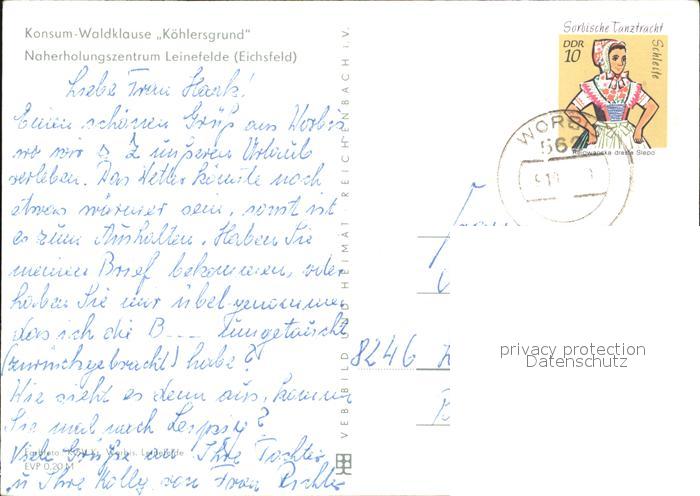 Konsum-Waldklause „Köhlersgrund"
Naherholungszentrum Leinefelde (Eichsfeld)
Liebe Frau Haak!
Einen schönen Gruß aus Worbis
wo wir z Z unseren Urlaub
verleben. Das Wetter könnte noch
etwas wärmer sein, sonst ist
es zum Aushalten. Haben Sie
meinen Brief bekommen, oder
haben Sie mir übel genommen
das ich die B.... umgetauscht
(zurückgebracht) habe?
Wie sieht es denn aus, kommen
Sie mal nach Leipzig?
Viele Grüße an Ihre Tochter
u Ihre Kolleg. von Frau
EVP 0,20 M
VEB BILD UND HEIMAT REICHENBACH i. V.
Sorbische Tanztracht
Schleife
DDR
10
drasta Slepo
WORBIS
562
8246
privacy protection
Datenschutz